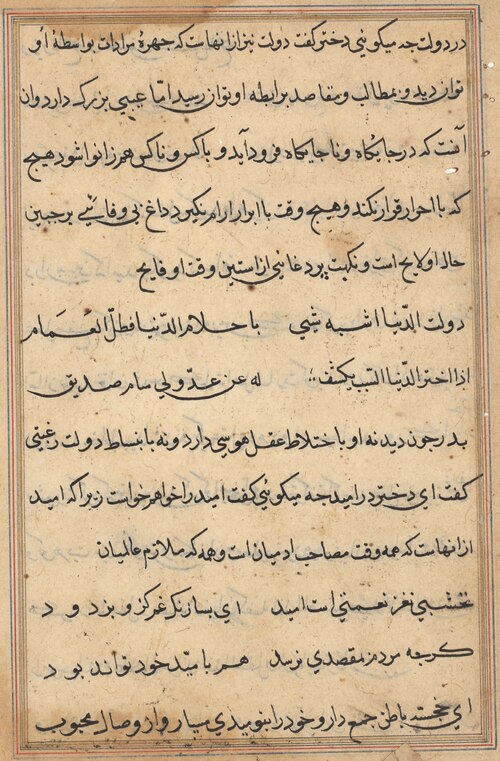 در دولت چه میکوئی دختر کفت دولت نیز از انهاست که چهرهٔ مرادات بواسطهٔ او
توان دید و بمطالب و مقاصد برابطه او توان رسید امّا عیبی بزرک دارد و ان
آنست که در جایکاه و ناجایکاه فرود آید و با کس و ناکس همزانو شود هیچ
که با احرار قرار نکند و هیچ وقت با ابرار ارام نکیرد داغ بی وفائیی بر جبین
حال او لایح است و نکهت پر دغائی از استین وقت او فایح
دولت الدّنیا اشبه شیی باحلام الدّنیا فظلّ الغمام
اذا اختبر الدّنیا اللبیب تکشفت له عن عدّو ولی سام صدیق
پدر چون دید نه او باختلاط عقل هوسی دارد و نه بانبساط دولت رغبتی
کفت ای دختر در امید چه میکوئی کفت امید را خواهم خواست زیرا که امید
از انهاست که همه وقت مصاحب ادمیان است و همه که ملازم عالمیان
نخشبی نغز نعمتی است امید ای بسا زنک غم کز و بزدود
کرچه مردم بمقصدی نرسد هم بامیّد خود تواند بود
ای خجسته باطن جمع دار و خود را بنومیدی میار و از وصال محبوب